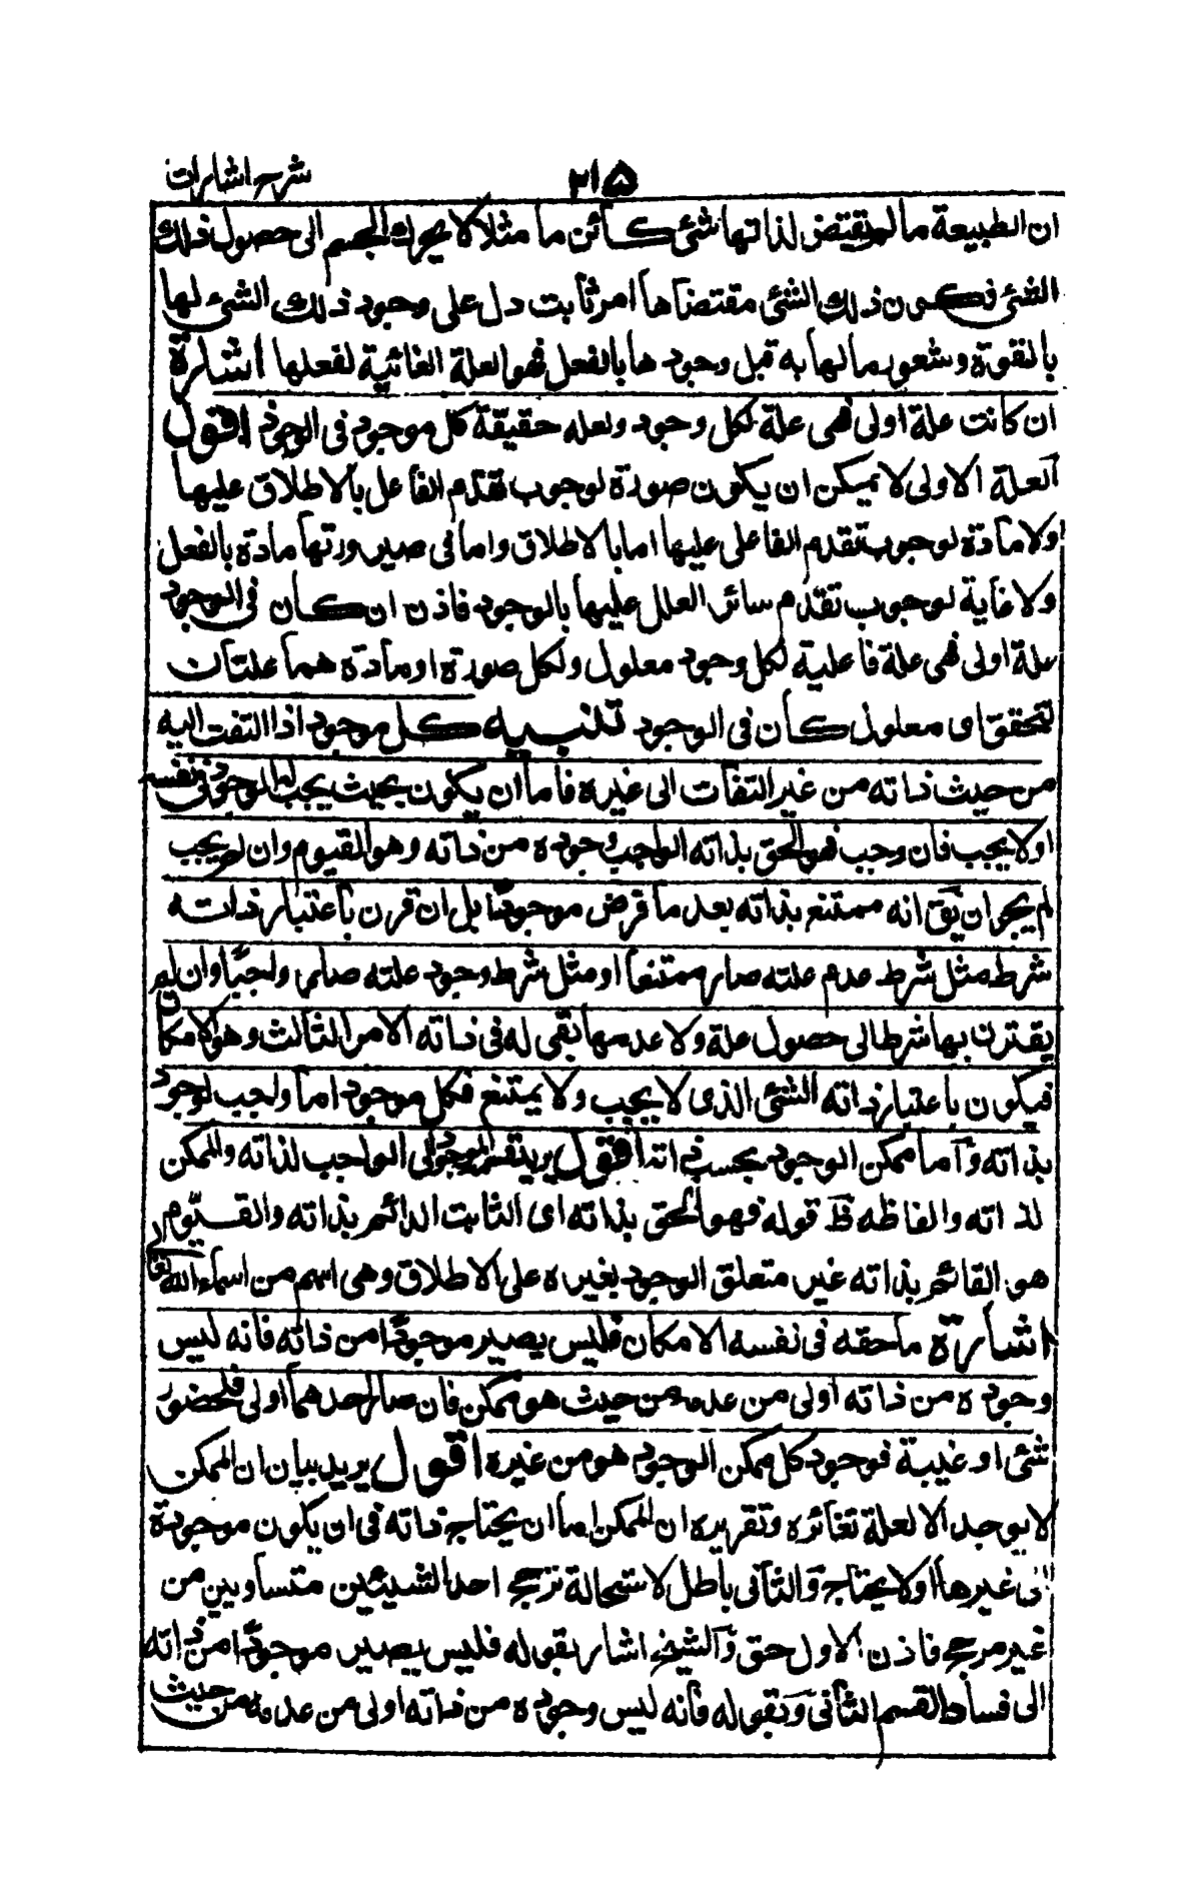 شرح اشارات
٣١٥
ان الطبيعة ما لم يقتض لذاتها شئ كائن ما مثلا لا يحرك الجسم الى حصول ذلك
الشئ فكون ذلك الشئ مقتضاها امر ثابت دل على وجود ذلك الشئ لها
بالقوة وشعور ما لها به قبل وجودها بالفعل فهو العلة الغائية لفعلها اشارة
ان كانت علة اولى فهى علة لكل وجود ولعلة حقيقة كل موجود فى الوجود اقول
العلة الاولى لا يمكن ان يكون صورة لوجوب تقدم الفاعل بالاطلاق عليها
ولا مادة لوجوب تقدم الفاعلى عليها اما بالاطلاق واما فى صيرورتها مادة بالفعل
ولا غاية لوجوب تقدم سائر العلل عليها بالوجود فاذن ان كان فى الوجود
علة اولى فهى علة فاعلية لكل وجود معلول ولكل صورة او مادة هما علتان
لتحقق اى معلول كان فى الوجود تنبيه كل موجود اذا التفت اليه
من حيث ذاته من غير التفات الى غيره فاما ان يكون بحيث يجب له الوجود فى نفسه
اولا يجب فان وجب فهو الحق بذاته الواجب وجوده من ذاته وهو القيوم وان لم يجب
لم يجز ان يق انه ممتنع بذاته بعد ما فرض موجودا بل ان قرن باعتبار ذاته
شرط مثل شرط عدم علته صار ممتنعا او مثل شرط وجود علته صار واجبا وان لم
يقترن بها شرط الى حصول علة ولا عدمها بقى له فى ذاته الامر الثالث وهو الامكان
فيكون باعتبار ذاته الشئ الذى لا يجب ولا يمتنع فكل موجود اما واجب لوجود
بذاته وآما ممكن الوجود بحسب ذاته اقول يريد تقسيم الموجود الى الواجب لذاته والممكن
لذاته والفاظه ظ قوله فهو الحق بذاته اى الثابت الدائم بذاته والقيّوم
هو القائم بذاته غير متعلق الوجود بغيره على الاطلاق وهى اسم من اسماء الله تعالى
اشارة ما حقه فى نفسه الامكان فليس يصير موجودا من ذاته فانه ليس
وجوده من ذاته اولى من عدمه من حيث هو ممكن فان صار احدهما اولى فلحضور
شئ او غيبة فوجود كل ممكن الوجود هو من غيره اقول يريد بيان ان الممكن
لا يوجد الا لعلة تغائره وتقريره ان الممكن اما ان يحتاج ذاته فى ان يكون موجودة
الى غيرها اولا يحتاج وآلثانى باطل لاستحالة ترجح احد الشيئين متساويين من
غير مرجح فاذن الاول حق وآلشيخ اشار بقوله فليس يصير موجودا من ذاته
الى فساد القسم الثانى وَبقوله فانه ليس وجوده من ذاته اولى من عدمه من حيث